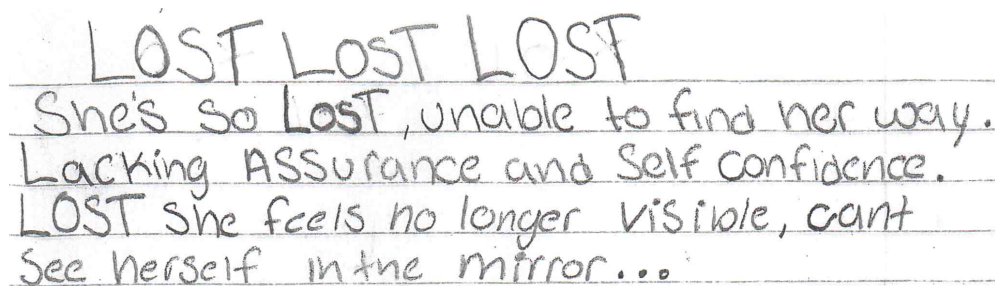 LOST LOST LOST
She's so LosT, unable to find her way.
Lacking ASSurance and Self confidence.
LOST She feels no longer visible, cant
See herself in the mirror...